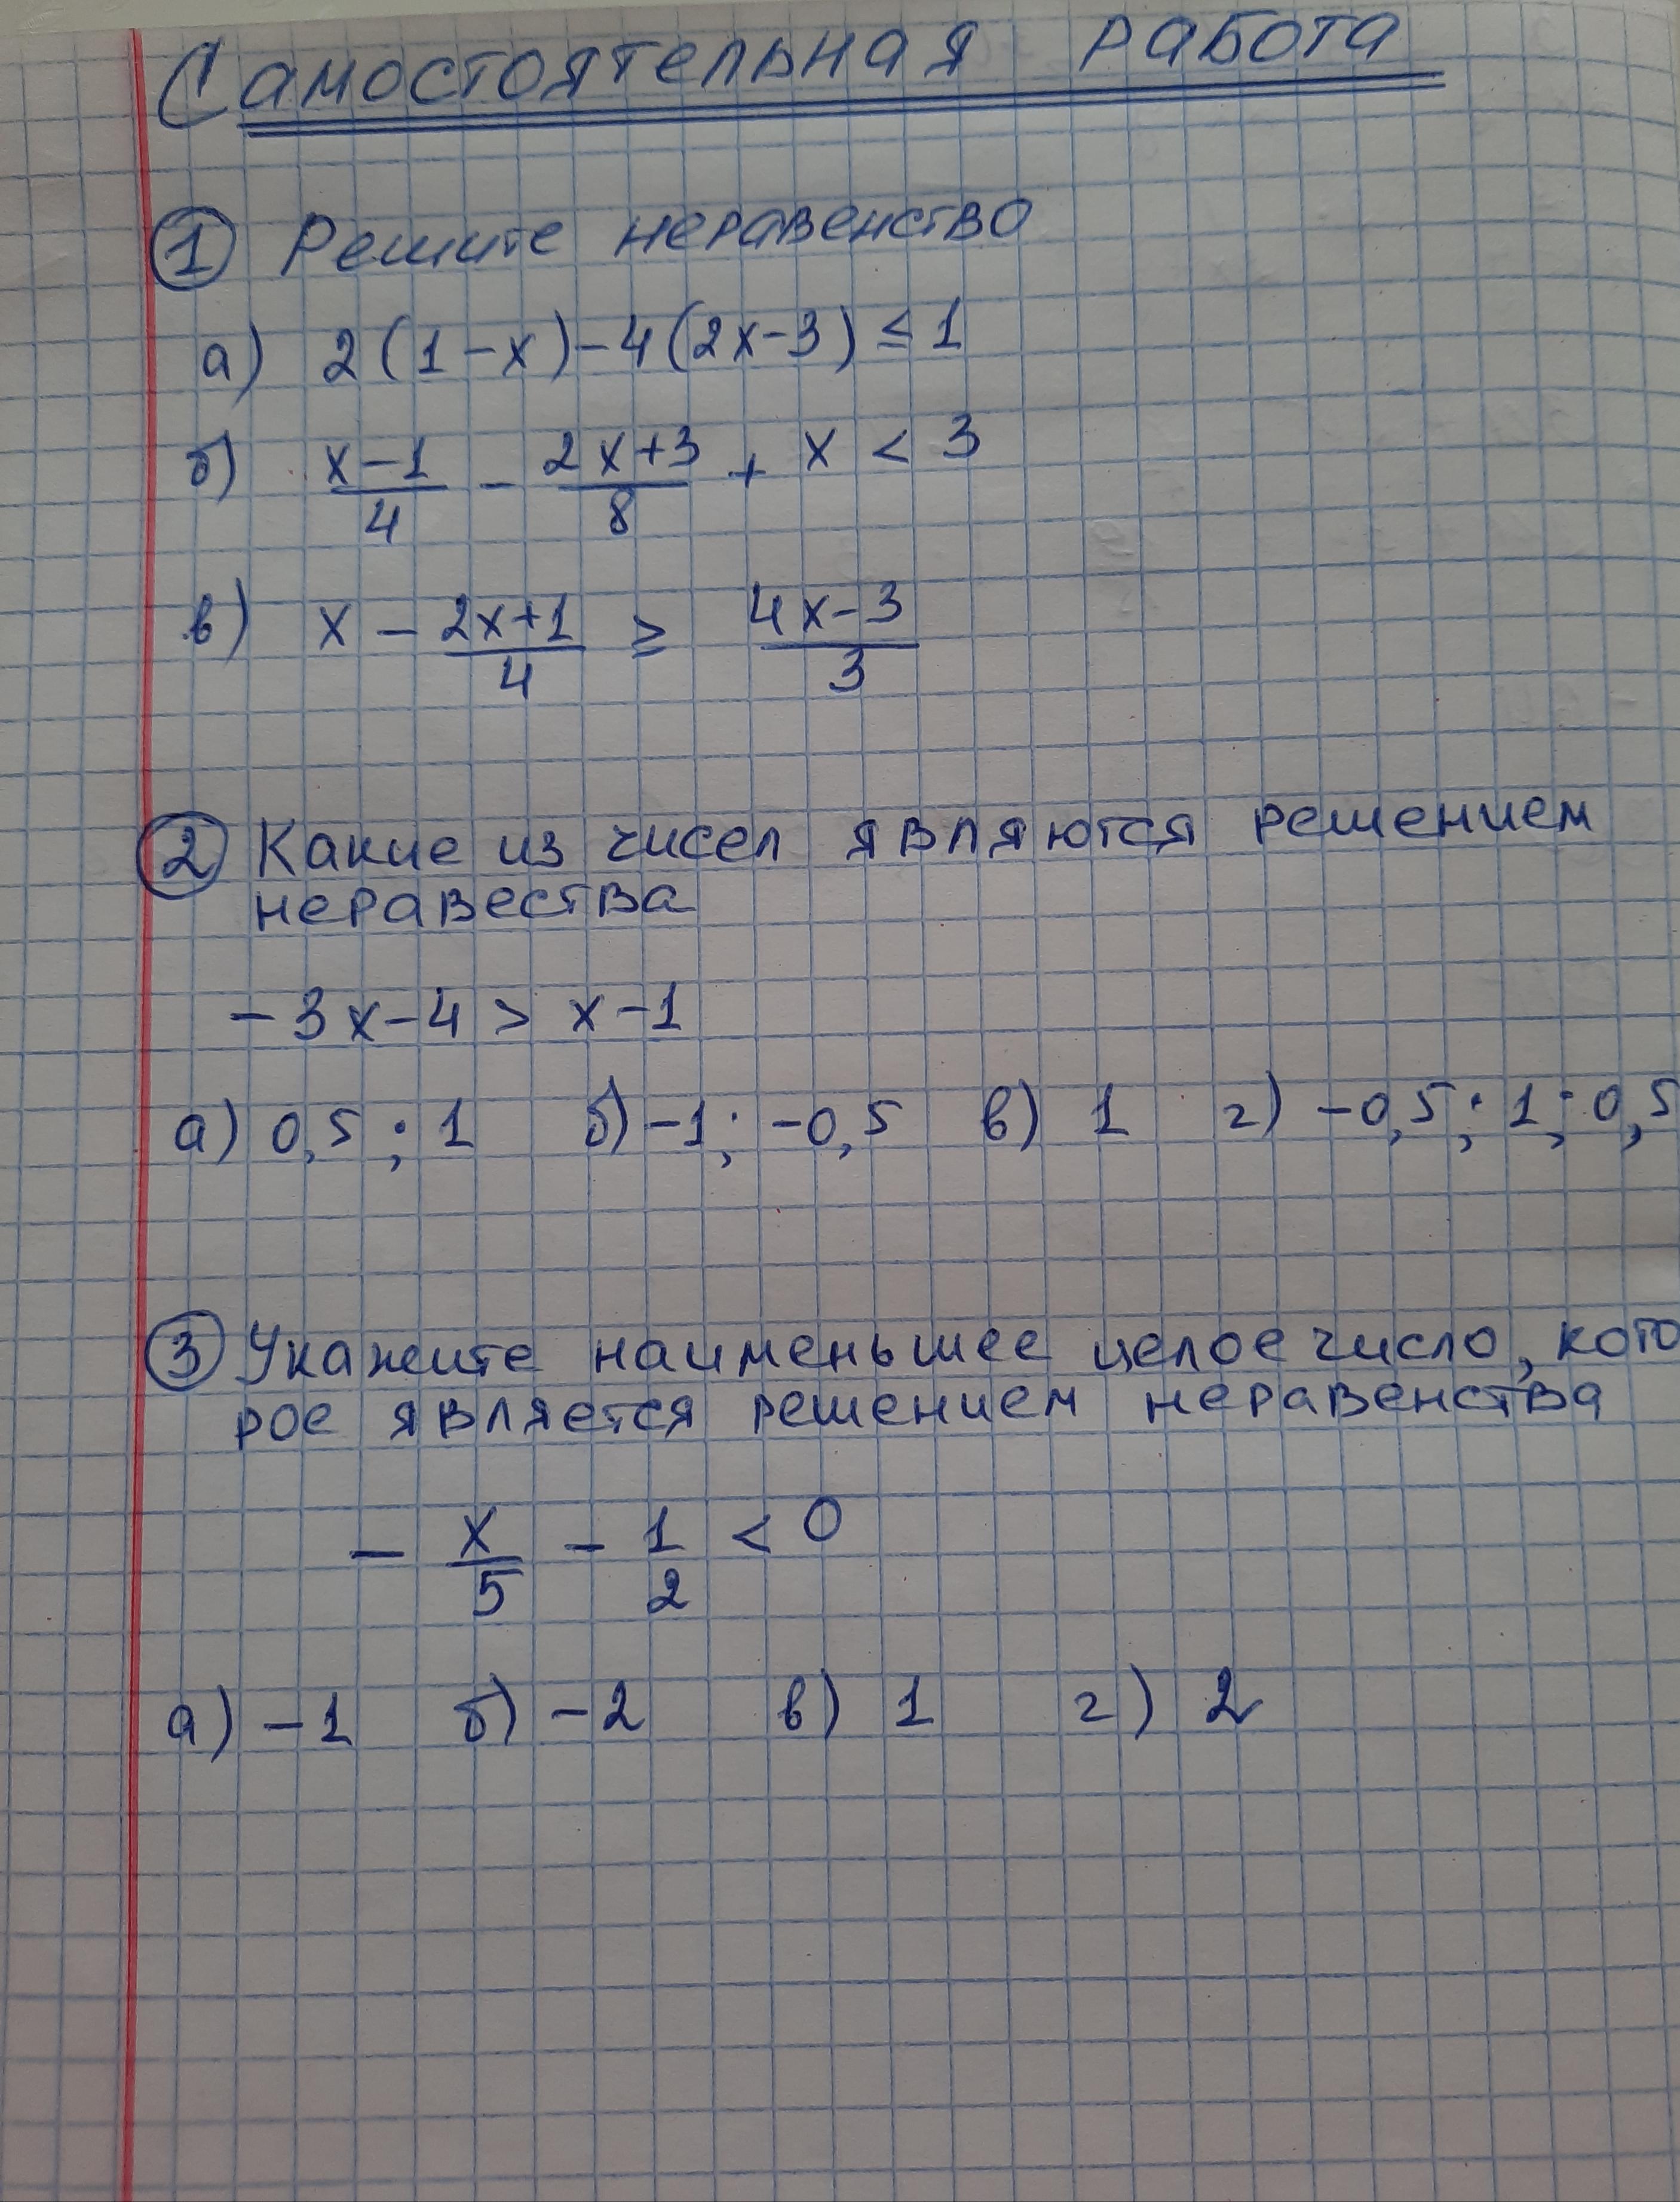 Самостоятельная работа
① Решите неравенство
а) 2(1-x)-4(2x-3) ≤ 1
б) (x-1)/4 - (2x+3)/8 + x < 3
в) x - (2x+1)/4 ≥ (4x-3)/3
② Какие из чисел являются решением
неравества
-3x-4 > x-1
а) 0,5 ; 1 б) -1; -0,5 в) 1 г) -0,5; 1; 0,5
③ Укажите наименьшее целое число, кото
рое является решением неравенства
- x/5 - 1/2 < 0
а) -1 б) -2 в) 1 г) 2